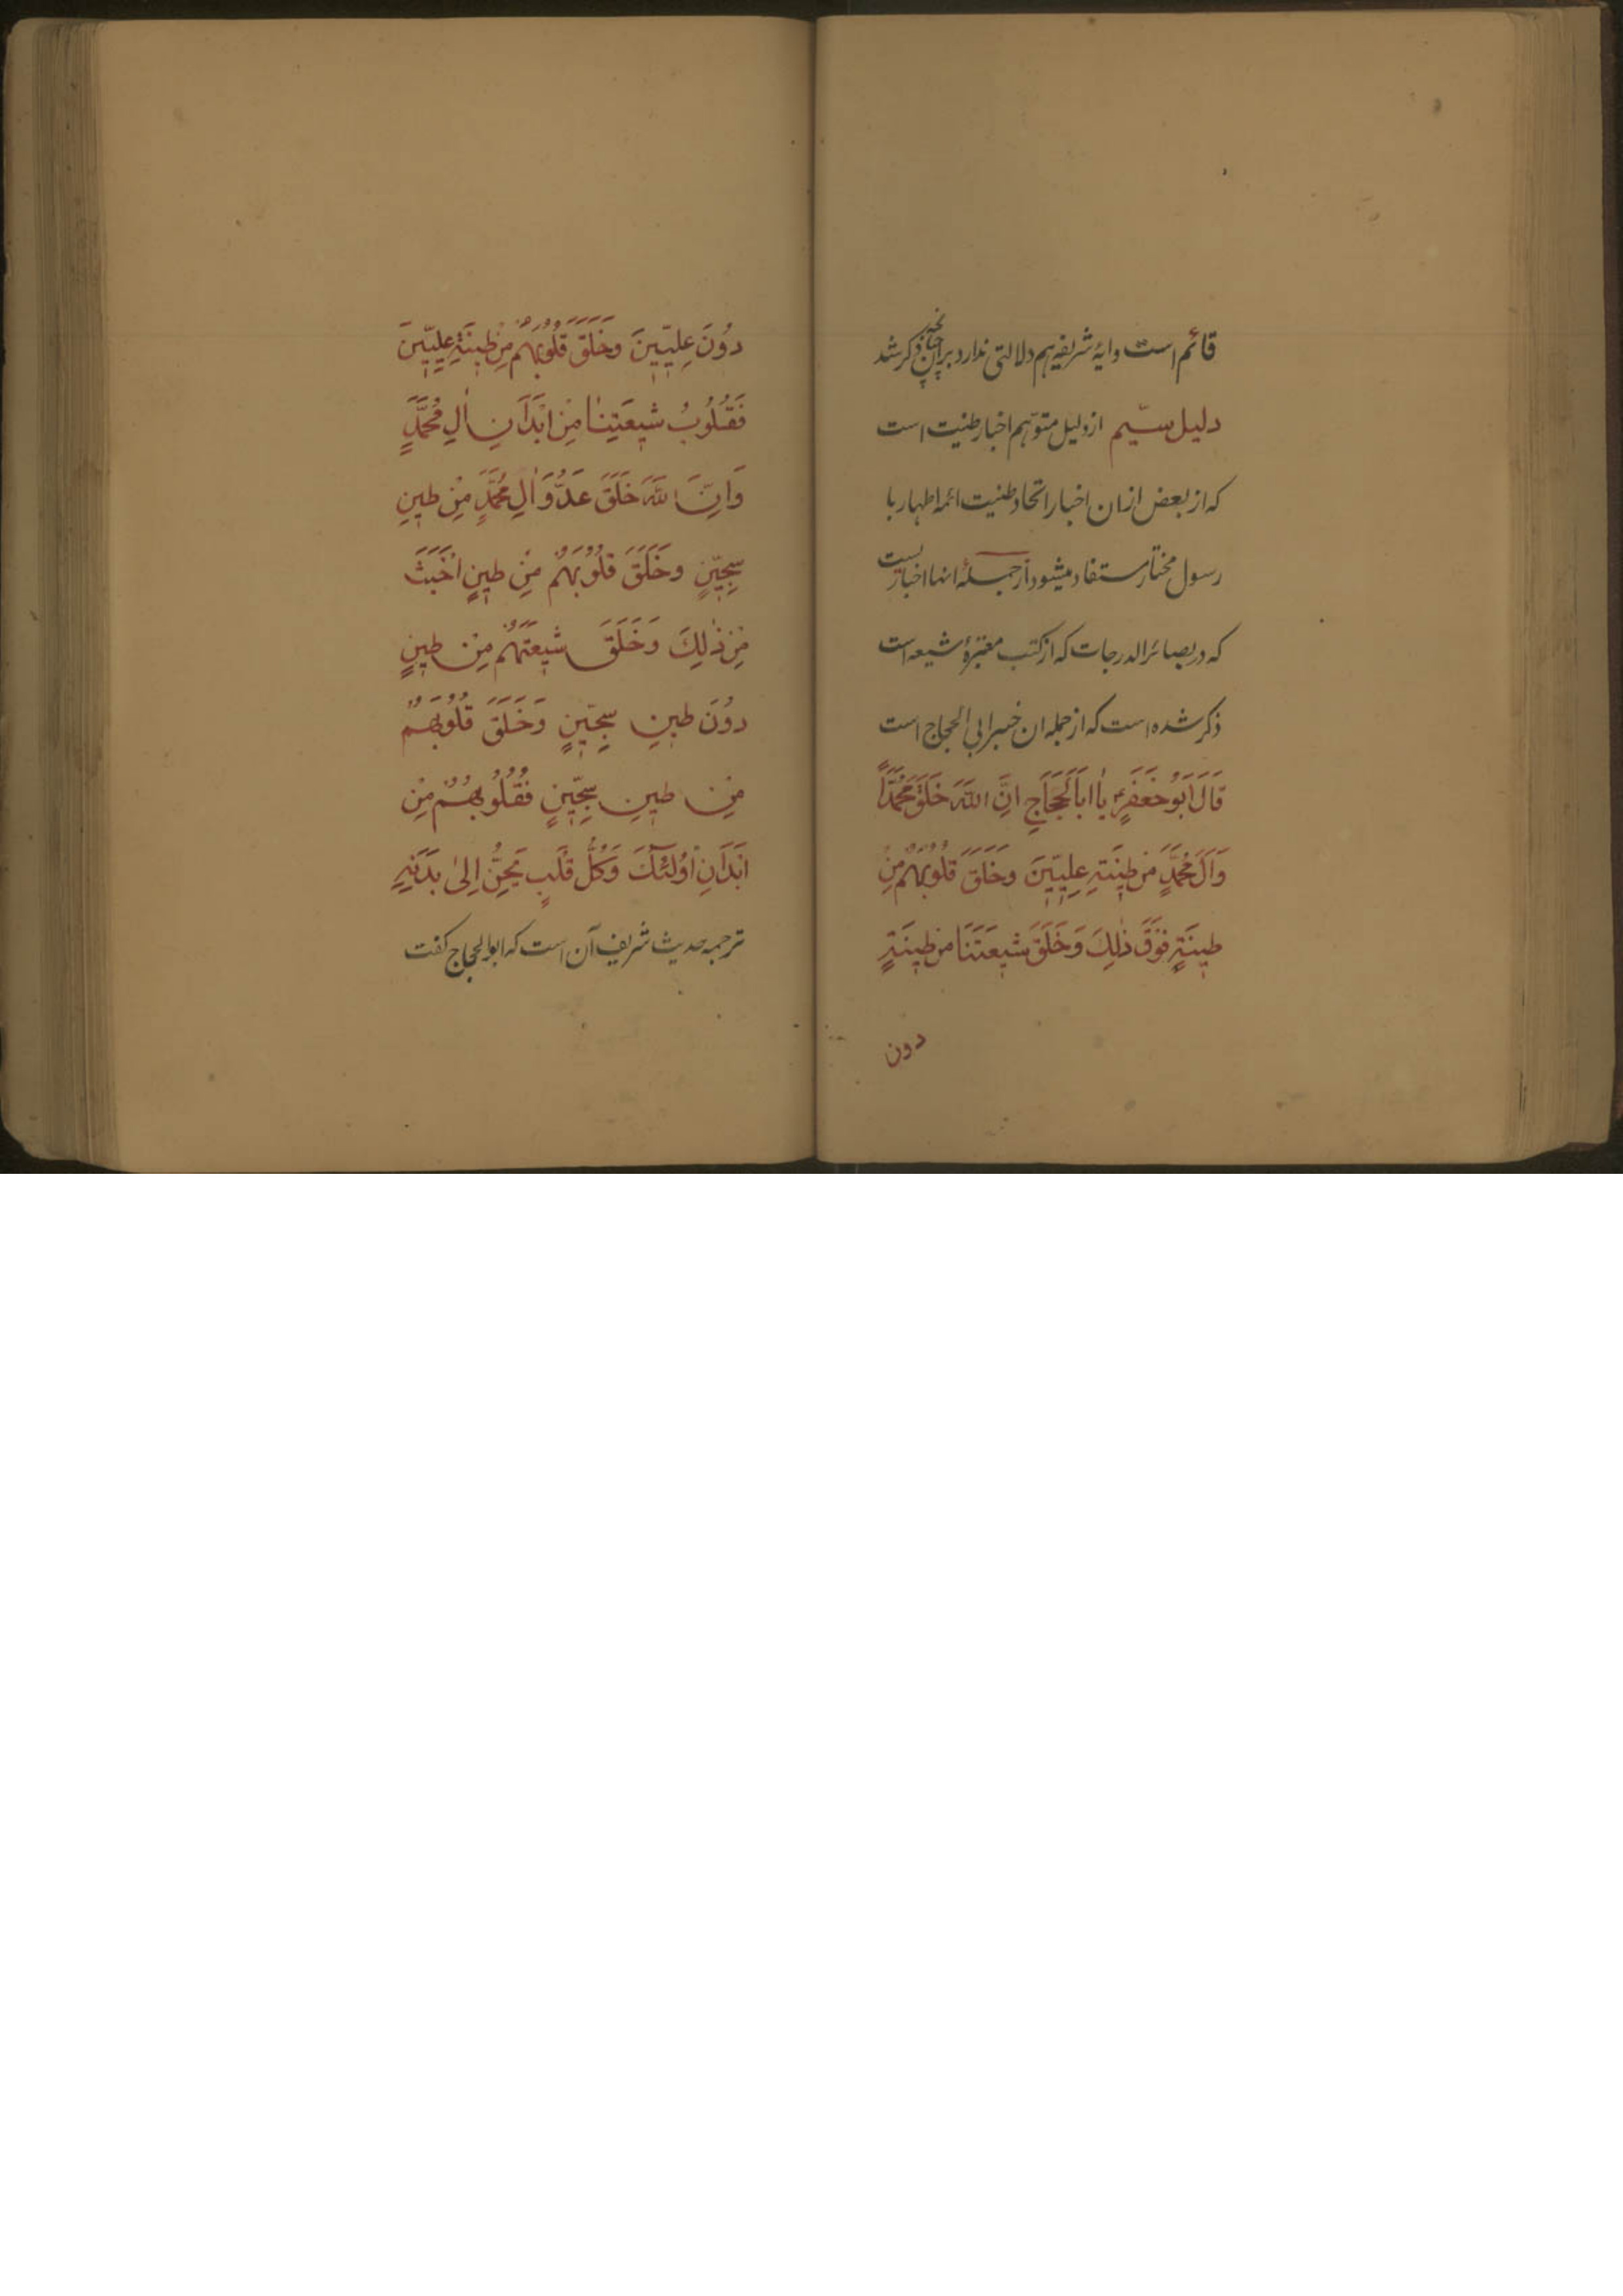 قائم است وایهٔ شریفه هم دلالتی ندارد بران چنانچه ذکر شد
دلیل سیّم ازدلیل متوهم اخبار طنیت است
که از بعض ازان اخبار اتحاد طنیت ائمه اطهار با
رسول مختار مستفاد میشود از جملهٔ انها اخباریست
که در بصائر الدرجات که از کتب معتبرهٔ شیعه است
ذکر شده است که از جمله ان خبر ابی الحجاج است
قَالَ اَبُو جَعْفَرٍ یٰا اَبَا الحَجَّاجِ اِنَّ اللّٰهَ خَلَقَ مُحَمَّدًا
وَآلَ مُحَمَّدٍ مِن طینَةِ عِلِیّینَ وخَلَقَ قُلُوبَهُم مِن
طینَةٍ فَوْقَ ذٰلِكَ وَخَلَقَ شیعَتَنَا مِن طینَةٍ
دون
دُونَ عِلِیّینَ وخَلَقَ قُلُوبَهُم مِنْ طینَةِ عِلِیّینَ
فَقُلُوبُ شیعَتِنٰا مِنْ اَبْدَانِ اٰلِ مُحَمَّدٍ
وَاِنَّ اللهَ خَلَقَ عَدُوَّ اٰلِ مُحَمَّدٍ مِنْ طینِ
سِجّینٍ وخَلَقَ قُلُوبَهُم مِنْ طینٍ اَخْبَثَ
مِن ذٰلِكَ وَخَلَقَ شیعَتَهُم مِنْ طینٍ
دُونَ طینِ سِجّینٍ وَخَلَقَ قُلُوبَهُم
مِنْ طینِ سِجّینٍ فَقُلُوبُهُم مِنْ
اَبْدَانِ اُولٰئِكَ وَكُلُّ قَلْبٍ یَحِنُّ اِلیٰ بَدَنِهِ
ترجمه حدیث شریف آن است که ابوالحجاج کفت